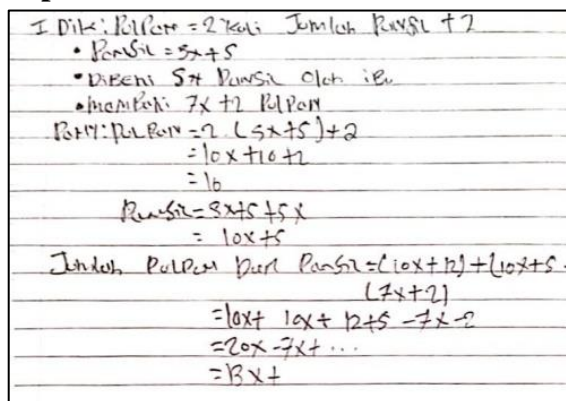 I Dik: PulPen = 2 kali Jumlah Pensil + 2
• Pensil = 5x+5
• Diberi 5x Pensil Oleh ibu
• memberi 7x+2 PulPen
PulPen = 2 (5x+5)+2
= 10x+10+2
= 10
Pensil = 5x+5+5x
= 10x+5
Jumlah PulPen Dan Pensil = (10x+12)+(10x+5 -
(7x+2)
= 10x+ 10x+ 12+5 -7x-2
= 20x -7x+ ...
= 13x+